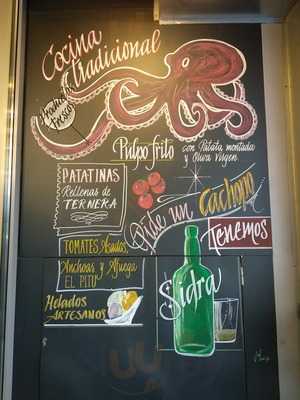 Cocina
Tradicional
Producto
Fresco
Pulpo frito
con Patata montada
y Oliva Virgen
PATATINAS
Rellenas de
TERNERA
Pide un Cachopo
TOMATES Asados
Tenemos
Sidra
Anchoas y Ajuega
EL PITU
Helados
ARTESANOS